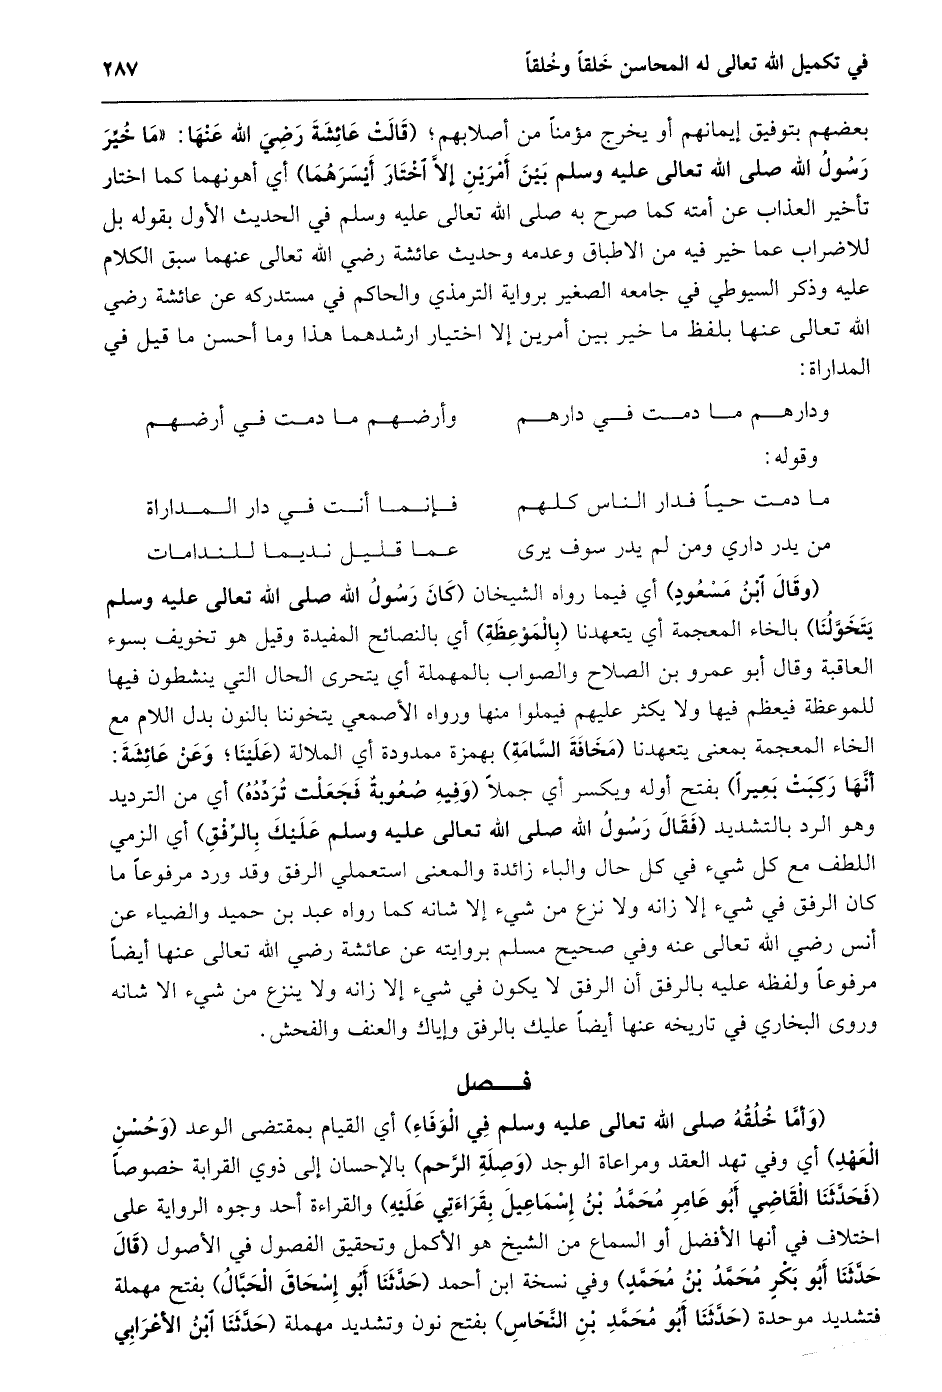 في تكميل الله تعالى له المحاسن خَلقاً وخُلقاً ٢٨٧
بعضهم بتوفيق إيمانهم أو يخرج مؤمناً من أصلابهم؛ (قَالَتْ عَائِشَةَ رَضِيَ الله عَنْهَا: «مَا خُيِّرَ
رَسُولُ الله صلى الله تعالى عليه وسلم بَيْنَ أَمْرَيْنِ إلاَّ ٱخْتَارَ أَيْسَرَهُمَا) أي أهونهما كما اختار
تأخير العذاب عن أمته كما صرح به صلى الله تعالى عليه وسلم في الحديث الأول بقوله بل
للاضراب عما خير فيه من الاطباق وعدمه وحديث عائشة رضي الله تعالى عنهما سبق الكلام
عليه وذكر السيوطي في جامعه الصغير برواية الترمذي والحاكم في مستدركه عن عائشة رضي
الله تعالى عنها بلفظ ما خير بين أمرين إلا اختيار ارشدهما هذا وما أحسن ما قيل في
المداراة:
ودارهم ما دمت في دارهم وأرضهم ما دمت في أرضهم
وقوله:
ما دمت حياً فدار الناس كلهم فإنما أنت في دار المداراة
من يدر داري ومن لم يدر سوف يرى عما قليل نديما للندامات
(وقَالَ ٱبْنُ مَسْعُودٍ) أي فيما رواه الشيخان (كَانَ رَسُولُ الله صلى الله تعالى عليه وسلم
يَتَخَوَّلُنَا) بالخاء المعجمة أي يتعهدنا (بِالْمَوْعِظَةِ) أي بالنصائح المفيدة وقيل هو تخويف بسوء
العاقبة وقال أبو عمرو بن الصلاح والصواب بالمهملة أي يتحرى الحال التي ينشطون فيها
للموعظة فيعظم فيها ولا يكثر عليهم فيملوا منها ورواه الأصمعي يتخوننا بالنون بدل اللام مع
الخاء المعجمة بمعنى يتعهدنا (مَخَافَةَ السَّامَةِ) بهمزة ممدودة أي الملالة (عَلَيْنَا؛ وَعَنْ عَائِشَةَ:
أنَّهَا رَكِبَتْ بَعِيراً) بفتح أوله ويكسر أي جملاً (وَفِيهِ صُعُوبةٌ فَجَعَلت تُرَدِّدُهُ) أي من الترديد
وهو الرد بالتشديد (فَقَالَ رَسُولُ الله صلى الله تعالى عليه وسلم عَلَيْكَ بِالرِّفْقِ) أي الزمي
اللطف مع كل شيء في كل حال والباء زائدة والمعنى استعملي الرفق وقد ورد مرفوعاً ما
كان الرفق في شيء إلا زانه ولا نزع من شيء إلا شانه كما رواه عبد بن حميد والضياء عن
أنس رضي الله تعالى عنه وفي صحيح مسلم بروايته عن عائشة رضي الله تعالى عنها أيضاً
مرفوعاً ولفظه عليه بالرفق أن الرفق لا يكون في شيء إلا زانه ولا ينزع من شيء الا شانه
وروى البخاري في تاريخه عنها أيضاً عليك بالرفق وإياك والعنف والفحش.
فصل
(وَأمَّا خُلُقُهُ صلى الله تعالى عليه وسلم فِي الْوَفَاءِ) أي القيام بمقتضى الوعد (وَحُسْنِ
الْعَهْدِ) أي وفي تهد العقد ومراعاة الوجد (وَصِلَةِ الرَّحم) بالإحسان إلى ذوي القرابة خصوصاً
(فَحَدَّثَنَا الْقَاضِي أَبُو عَامِرٍ مُحَمَّدُ بْنُ إسْمَاعِيلَ بِقَرَاءَتي عَلَيْهِ) والقراءة أحد وجوه الرواية على
اختلاف في أنها الأفضل أو السماع من الشيخ هو الأكمل وتحقيق الفصول في الأصول (قَالَ
حَدَّثَنَا أَبُو بَكْرٍ مُحَمَّدُ بْنُ مُحَمَّدٍ) وفي نسخة ابن أحمد (حَدَّثَنَا أَبُو إِسْحَاقَ الْحَبَّالُ) بفتح مهملة
فتشديد موحدة (حَدَّثَنَا أَبُو مُحَمَّدِ بْنِ النَّحَّاسِ) بفتح نون وتشديد مهملة (حَدَّثَنَا ٱبْنُ الأعْرَابي